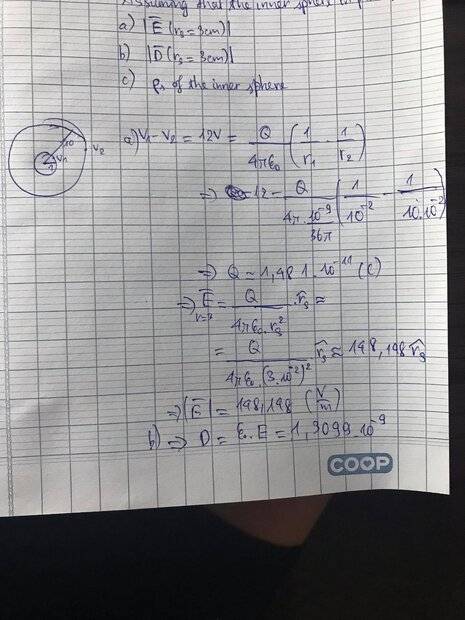 Assuming that the inner sphere
a) |E̅ (r₃ = 3cm)|
b) |D̅ (r₃ = 3cm)|
c) ρs of the inner sphere
10 V₁ V₂ 1
a) V₁ - V₂ = 12V = Q/(4πε₀) (1/r₁ - 1/r₂)
⇒ 12 = Q/(4π · 10⁻⁹/36π) (1/10⁻² - 1/(10·10⁻²))
⇒ Q = 1,481 · 10⁻¹¹ (C)
⇒ E̅ = Q/(4πε₀ · r₃²) · r̂₃ ≈
= Q/(4πε₀ · (3·10⁻²)²) · r̂₃ ≈ 148,148 r̂₃
⇒ |E̅| = 148,148 (V/m)
b) ⇒ D = ε₀ · E = 1,3099 · 10⁻⁹
COOP